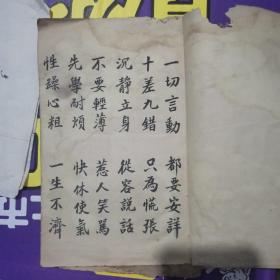 一切言動　都要安詳
十差九錯　只為慌張
沉靜立身　從容說話
不要輕薄　惹人笑罵
先學耐煩　快休使氣
性躁心粗　一生不濟